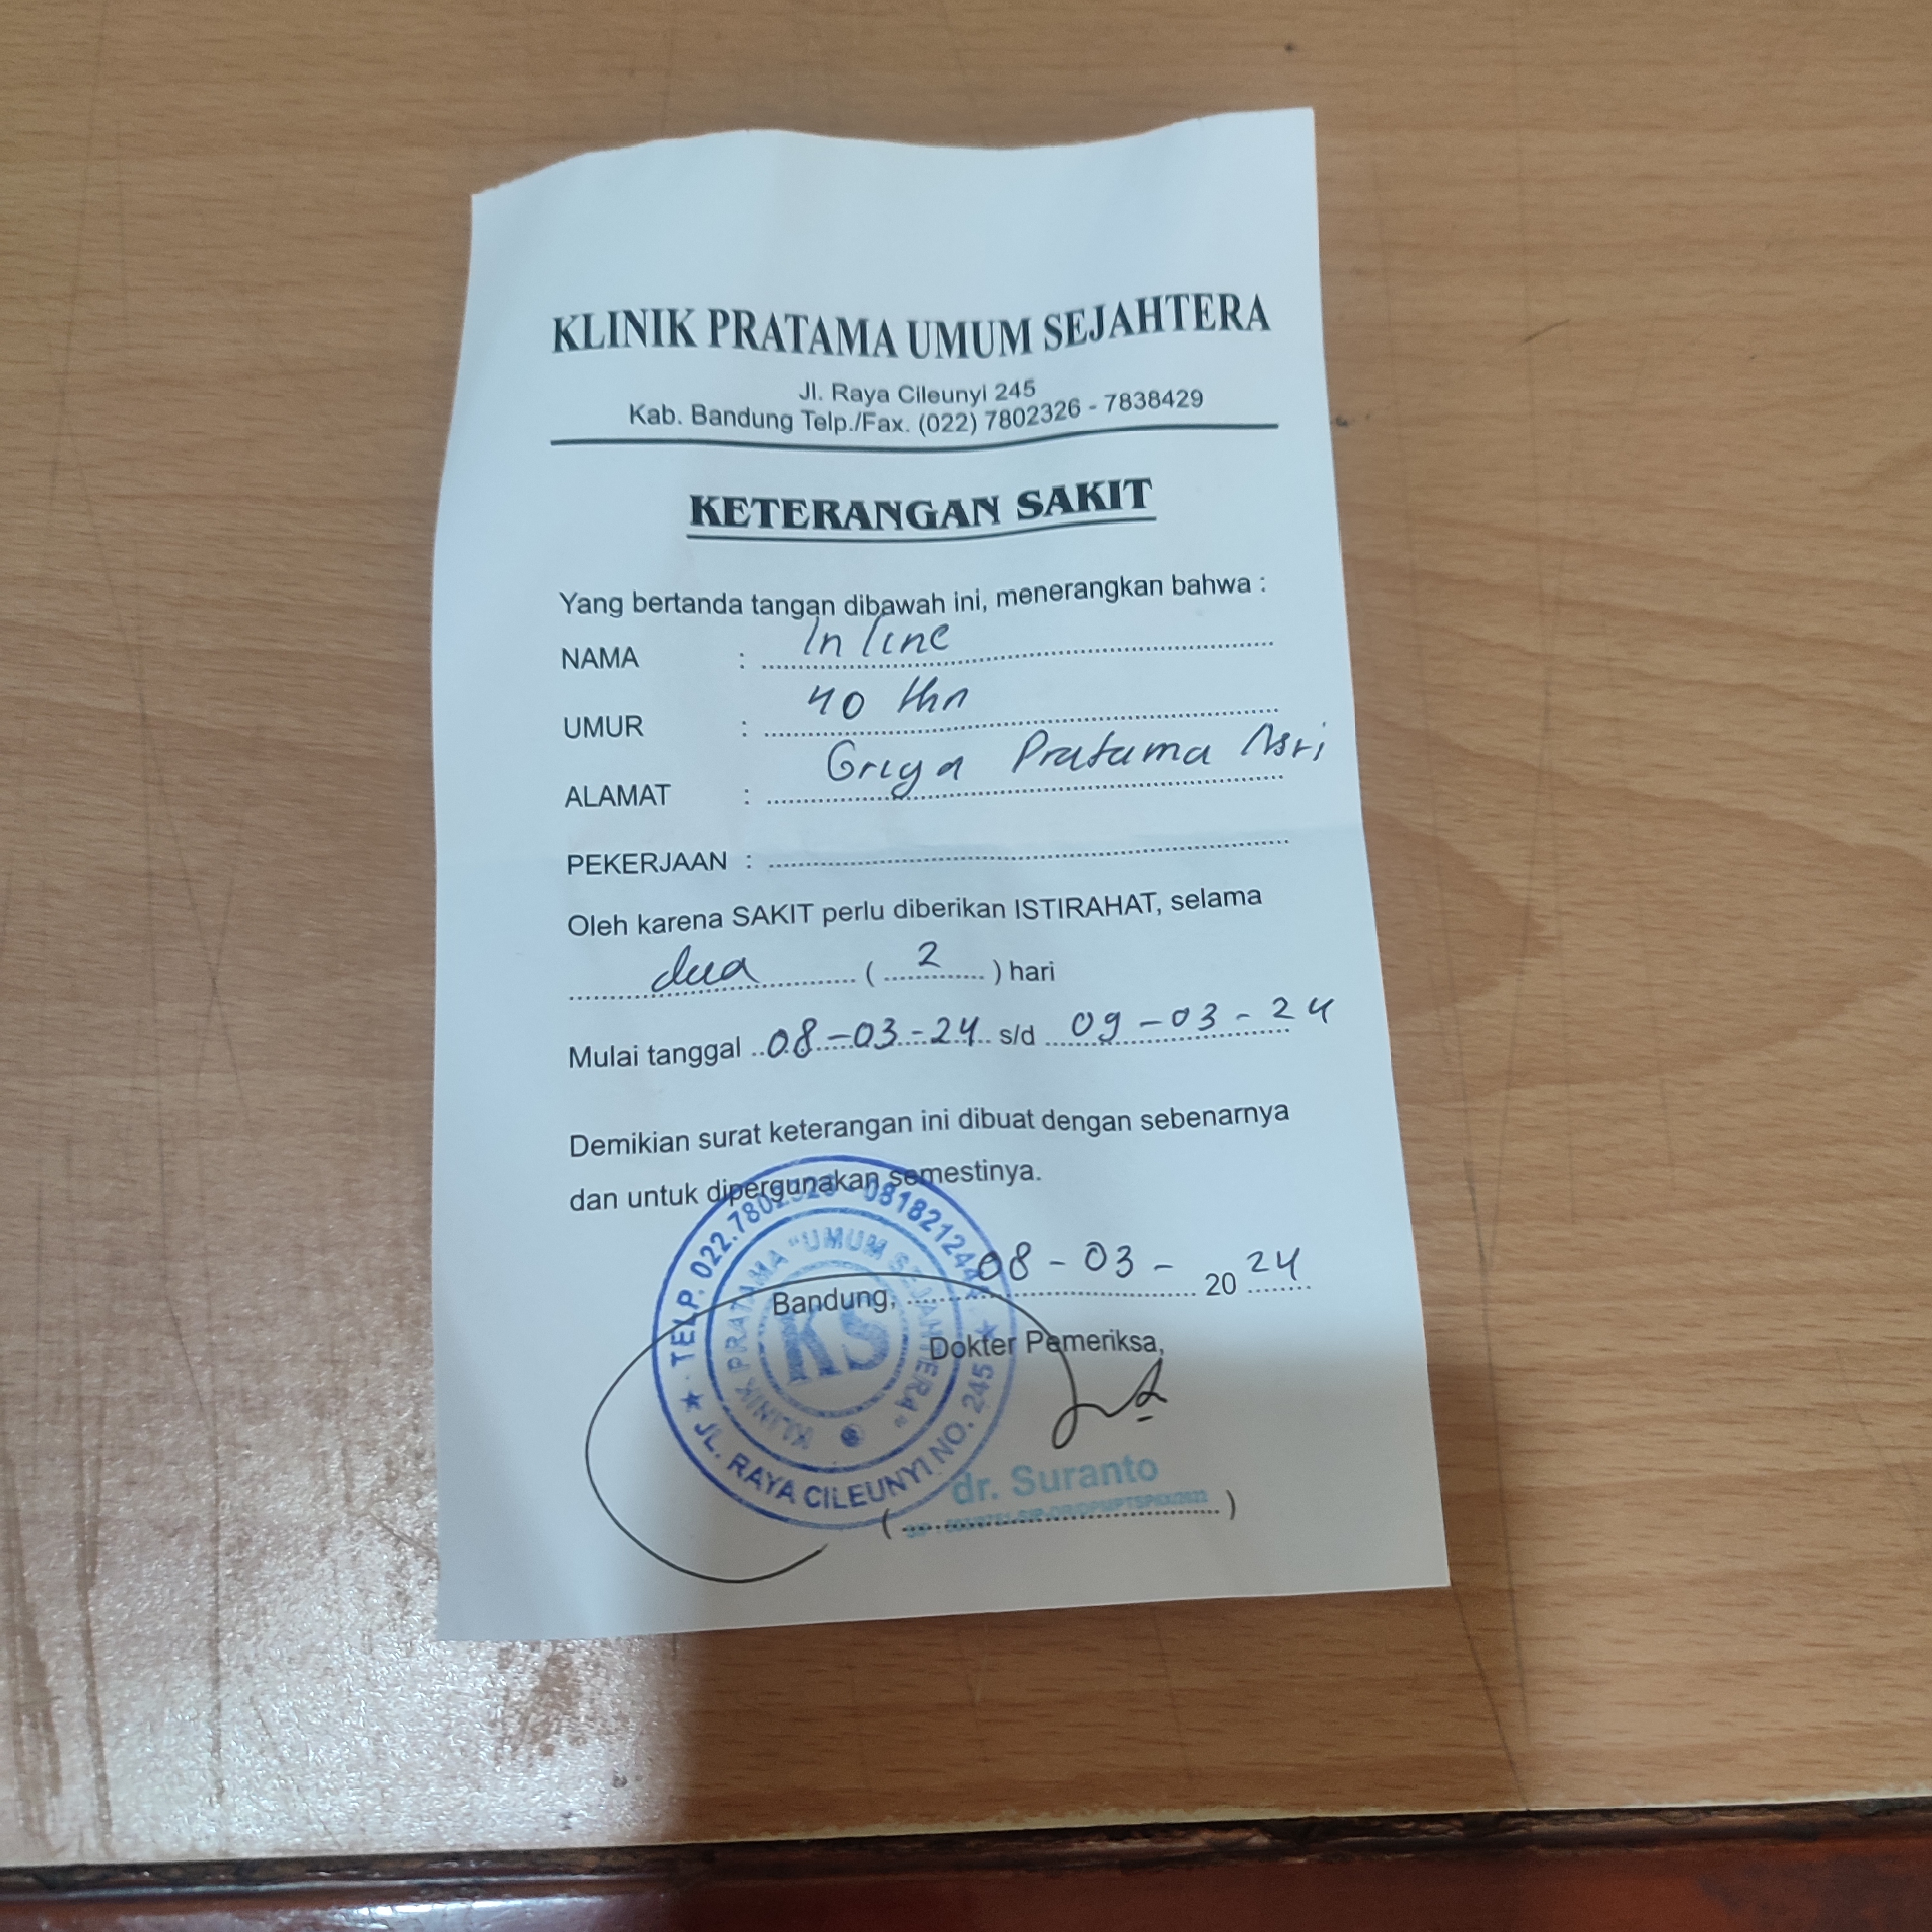 KLINIK PRATAMA UMUM SEJAHTERA
Jl. Raya Cileunyi 245
Kab. Bandung Telp./Fax. (022) 7802326 - 7838429
KETERANGAN SAKIT
Yang bertanda tangan dibawah ini, menerangkan bahwa :
NAMA : Inline
UMUR : 40 thn
ALAMAT : Griya Pratama Asri
PEKERJAAN :
Oleh karena SAKIT perlu diberikan ISTIRAHAT, selama
dua ( 2 ) hari
Mulai tanggal 08-03-24 s/d 09-03-24
Demikian surat keterangan ini dibuat dengan sebenarnya
dan untuk dipergunakan semestinya.
Bandung, 08-03- 20 24
Dokter Pemeriksa,
dr. Suranto
TELP. 022.7802326
KLINIK PRATAMA "UMUM SEJAHTERA"
KS
JL. RAYA CILEUNYI NO. 245